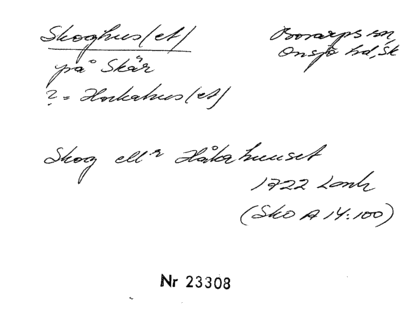 Skoghus(et)
på Skär
? = Horkahus(et)
Bonarps sn,
Onsjö hd, Sk
Skog ell r Håkahuuset
1722 Lantr
(Sko A 14:100)
Nr 23308